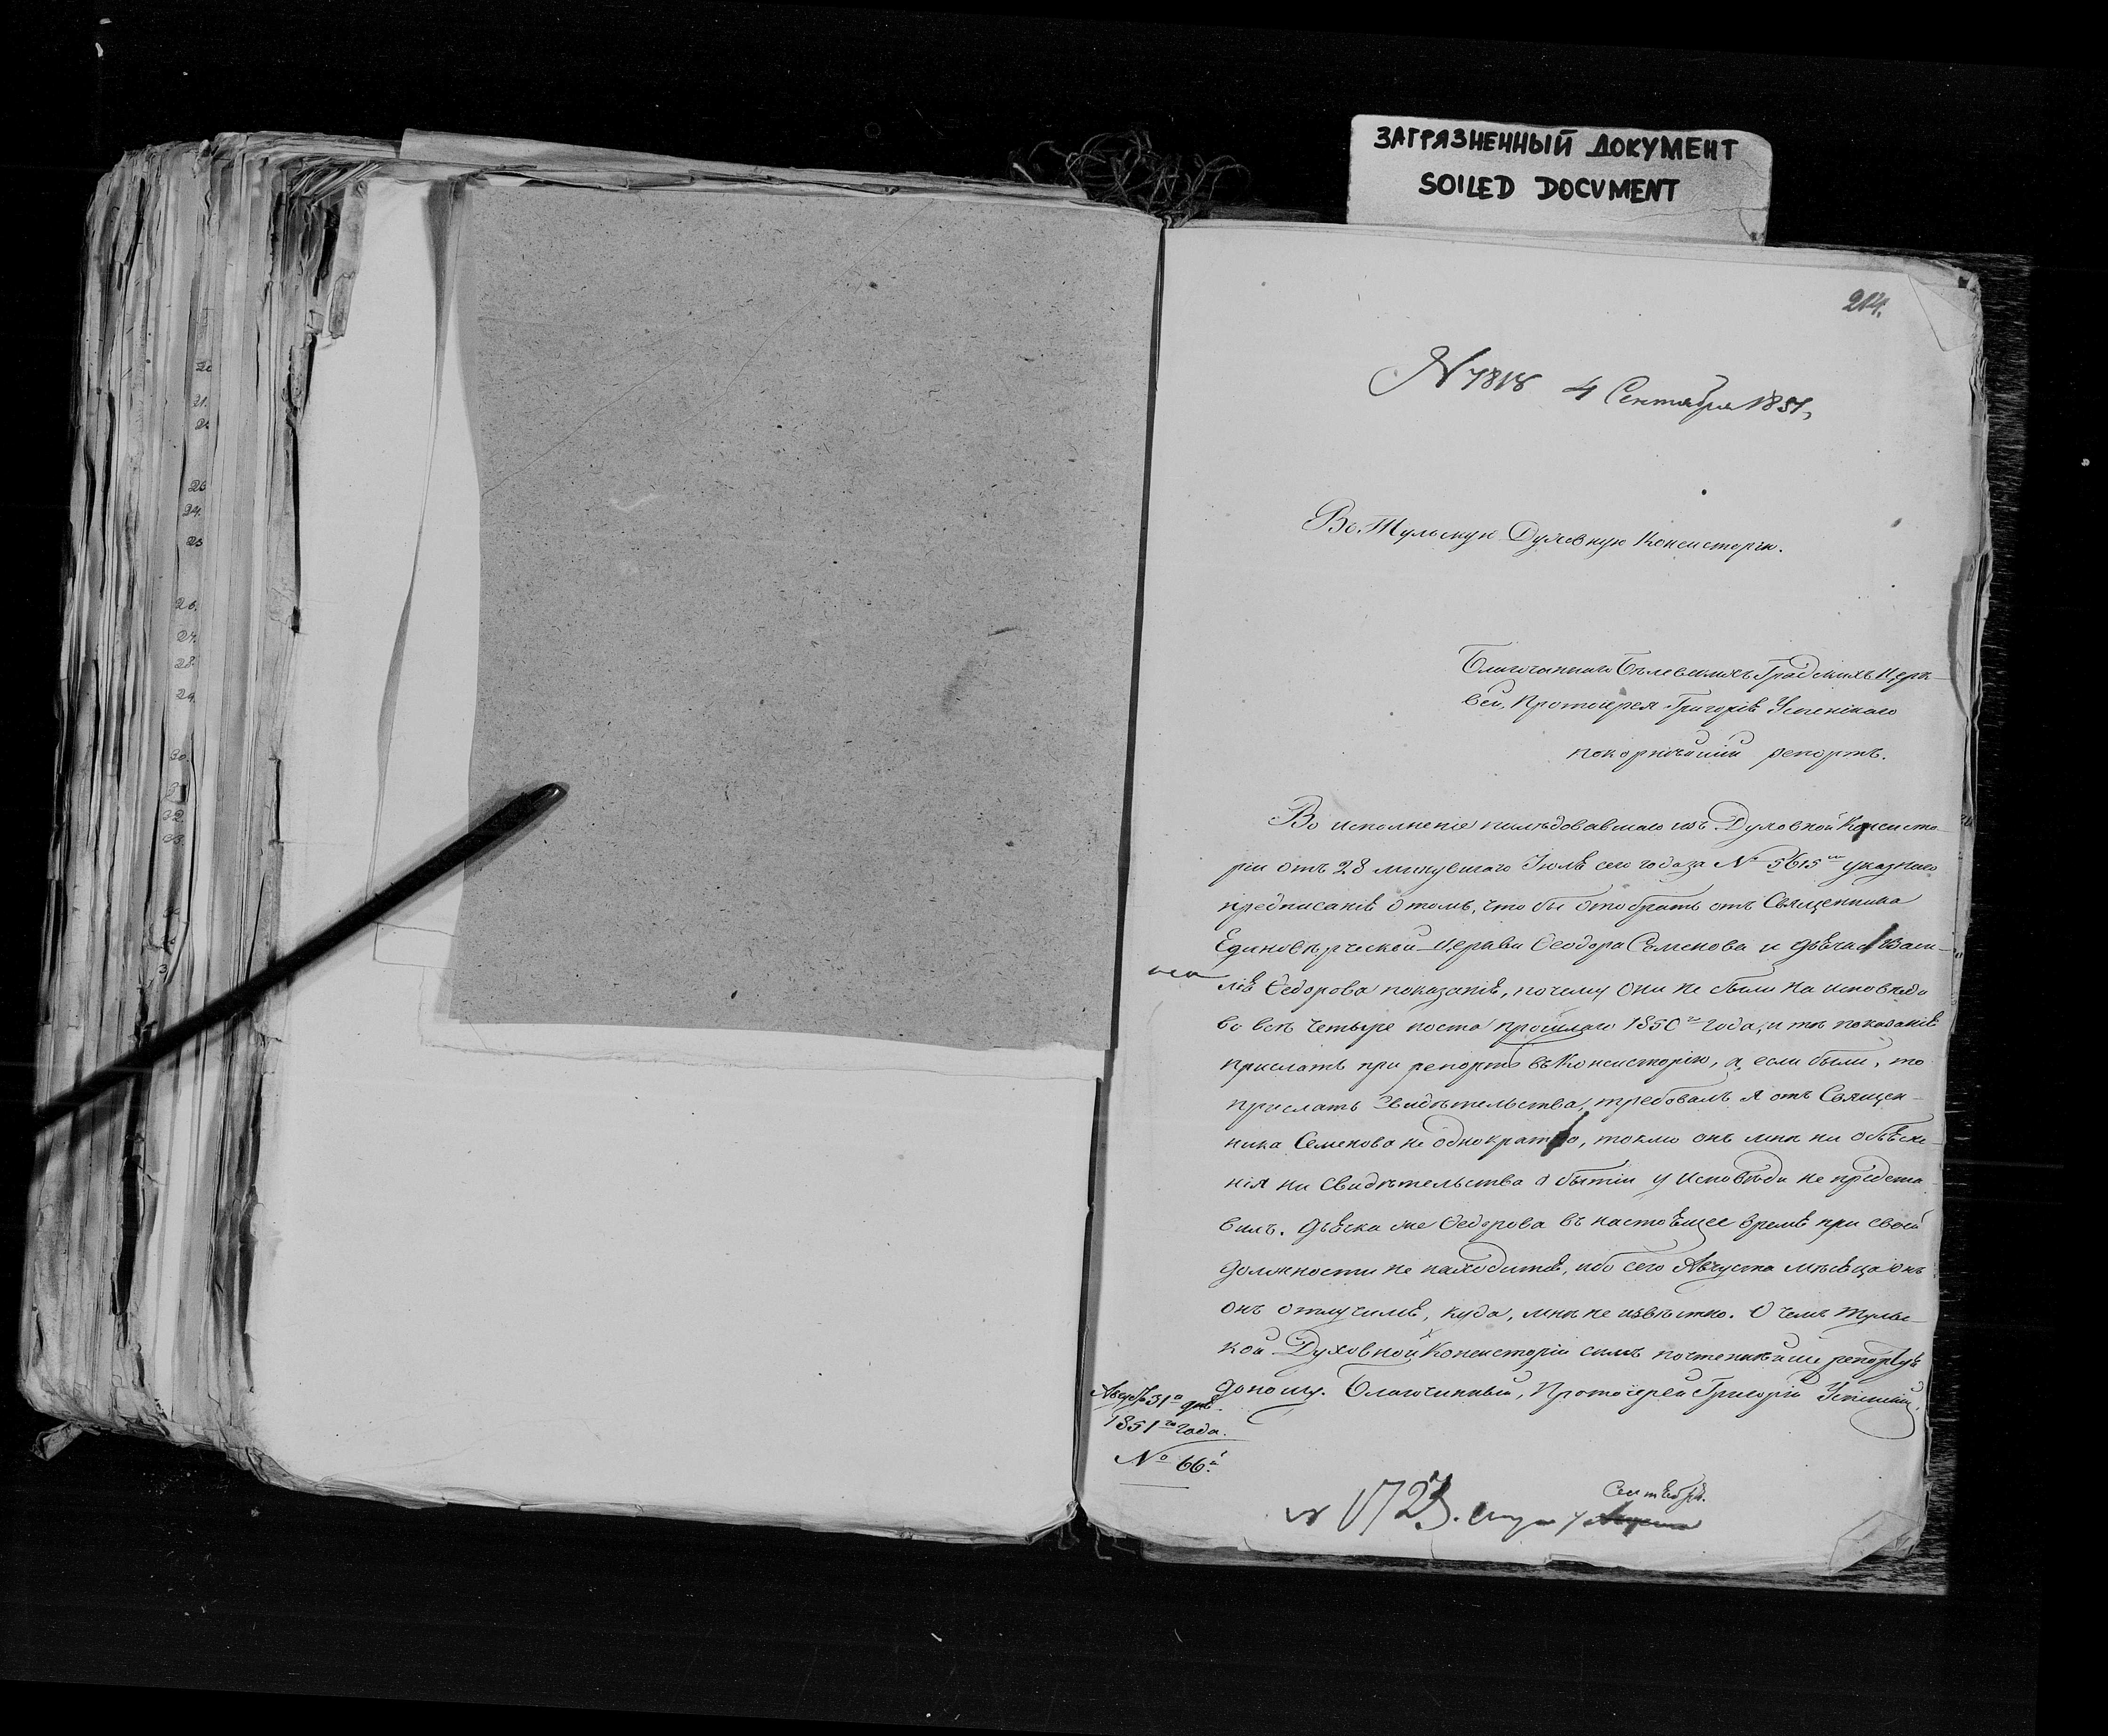 ЗАГРЯЗНЕННЫЙ ДОКУМЕНТ
SOILED DOCUMENT
214.
№ 7818 4 Сентября 1851,
Въ Тульскую Духовную Консисторію.
Благочиннаго Бѣлевскихъ Градскихъ Церк-
вей, Протоіерея Григорія Успенскаго
покорнѣйшій репортъ.
Во исполненіе послѣдовавшаго изъ Духовной Консисто-
ріи отъ 28 минувшаго Іюля сего года за № 5615 указнаго
предписанія о томъ, что бы отобрать отъ Священника
Единовѣрческой Церкви Ѳеодора Семенова и дьячка Васи-
лія Ѳедорова показанія, почему они не были на исповѣди
во всѣ четыре поста прошлаго 1850го года, и тѣ показанія
прислать при репортѣ въ Консисторію, а если были, то
прислать Свидѣтельства, требовалъ я отъ Священ-
ника Семенова не однократно, токмо онъ мнѣ ни объясне-
нія ни Свидѣтельства о бытіи у Исповѣди не предста-
вилъ. Дьячка же Ѳедорова въ настоящее время при своей
должности не находится, ибо сего Августа мѣсяца онъ
онъ отлучился, куда, мнѣ не извѣстно. О чемъ Туль-
кой Духовной Консисторіи симъ почтеннѣйше репортуя
доношу. Благочинный, Протоіерей Григорій Успенскій.
Августа 31го дня.
1851го года.
№ 66й
Сентября.
20
21.
23
24.
25
26.
27.
28.
29.
30.
32.
33.